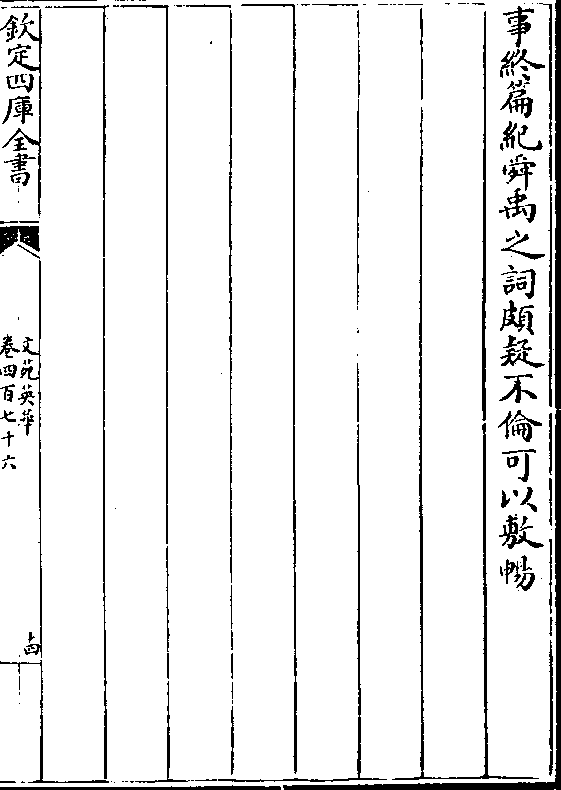 事終篇紀舜禹之詞頗疑不倫可以敷暢
欽定四庫全書
文苑英華
卷四百七十六
十四